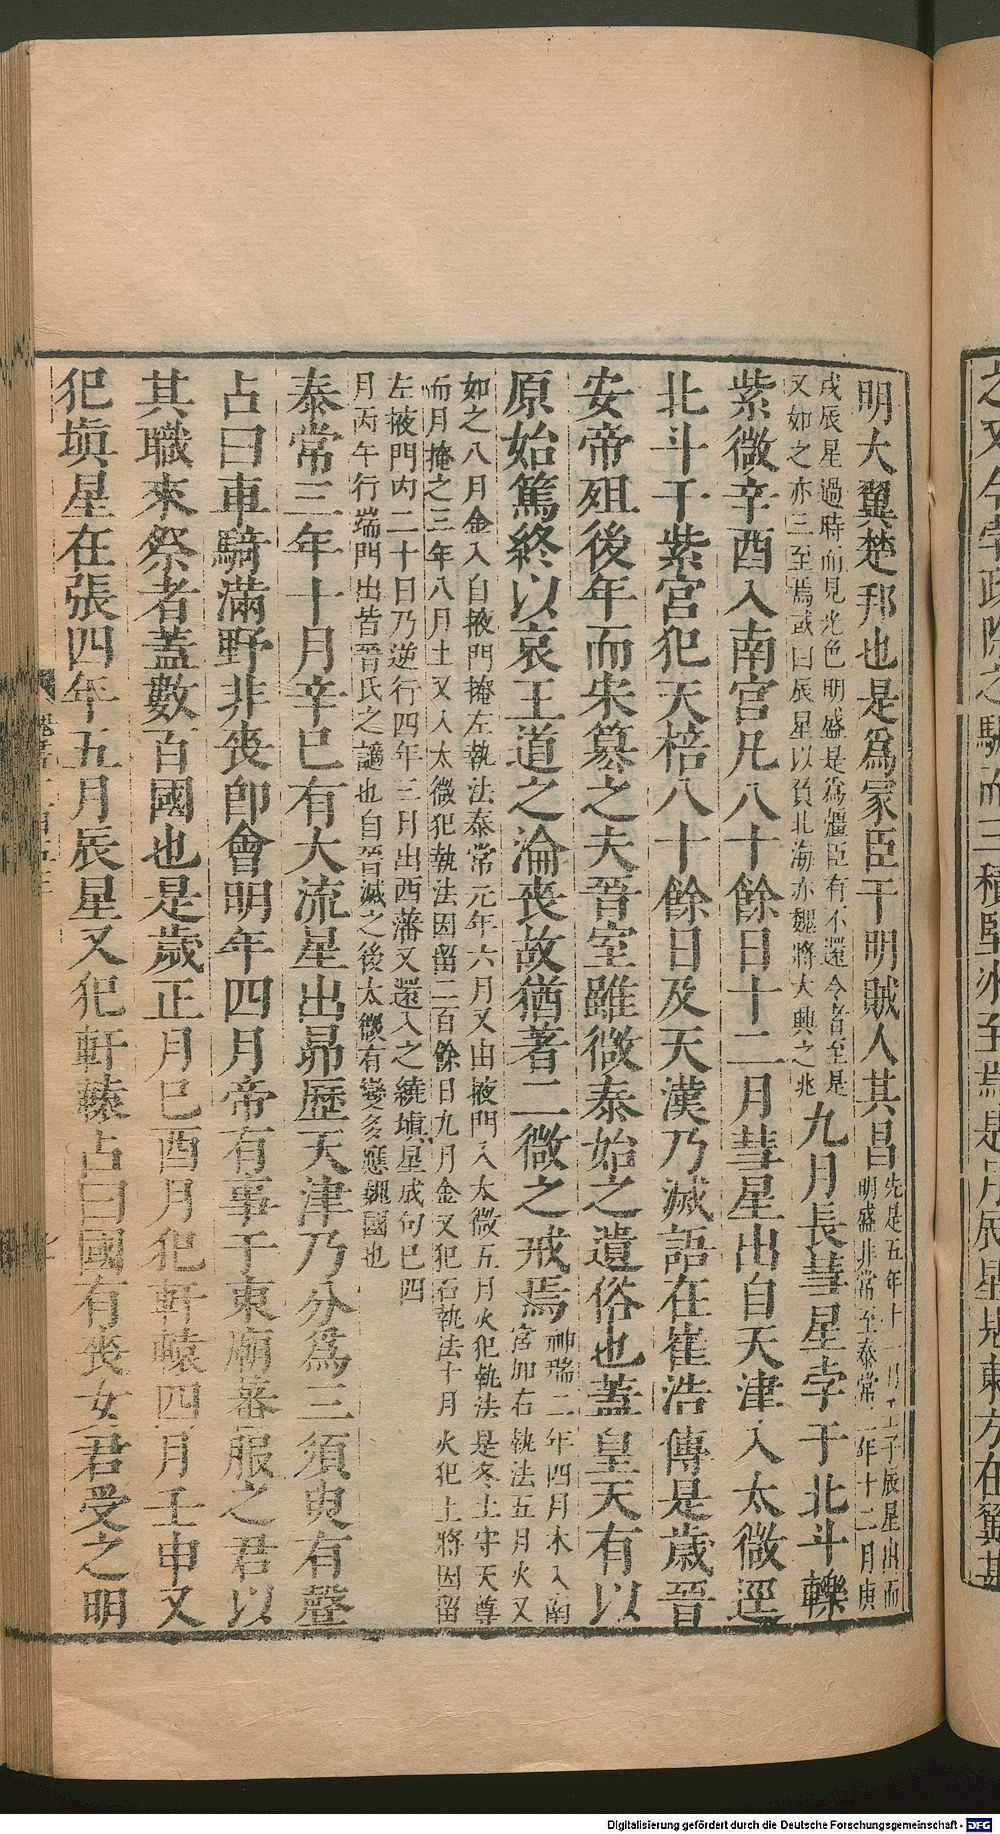 明大翼楚邦也是爲冢臣干明賊人其昌先是五年十一月壬子辰星出而明盛非常至泰常二年十二月庚
戌辰星過時而見光色明盛是爲彊臣有不還令者至是又如之亦三至焉或曰辰星以負北海亦魏將大興之兆九月長彗星孛于北斗轢
紫微辛酉入南宮凡八十餘日十二月彗星出自天津入太微逕
北斗干紫宮犯天棓八十餘日及天漢乃滅語在崔浩傳是歲晉
安帝殂後年而宋篡之夫晉室雖微泰始之遺俗也蓋皇天有以
原始篤終以哀王道之淪喪故猶著二微之戒焉神瑞二年四月木入南宮加右執法五月火又
如之八月金入自掖門掩左執法泰常元年六月又由掖門入太微五月火犯執法是冬土守天尊而月掩之三年八月土又入太微犯執法因留二百餘日九月金又犯右執法十月火犯上將因留
左掖門内二十日乃逆行四年三月出西藩又還入之繞塡星成句巳四月丙午行端門出皆晉氏之讁也自晉滅之後太微有變多應魏國也
泰常三年十月辛巳有大流星出昴歷天津乃分爲三須臾有聲
占曰車騎滿野非喪卽會明年四月帝有事于東廟蕃服之君以
其職來祭者蓋數百國也是歲正月巳酉月犯軒轅四月壬申又
犯塡星在張四年五月辰星又犯軒轅占曰國有喪女君受之明
Digitalisierung gefördert durch die Deutsche Forschungsgemeinschaft - DFG